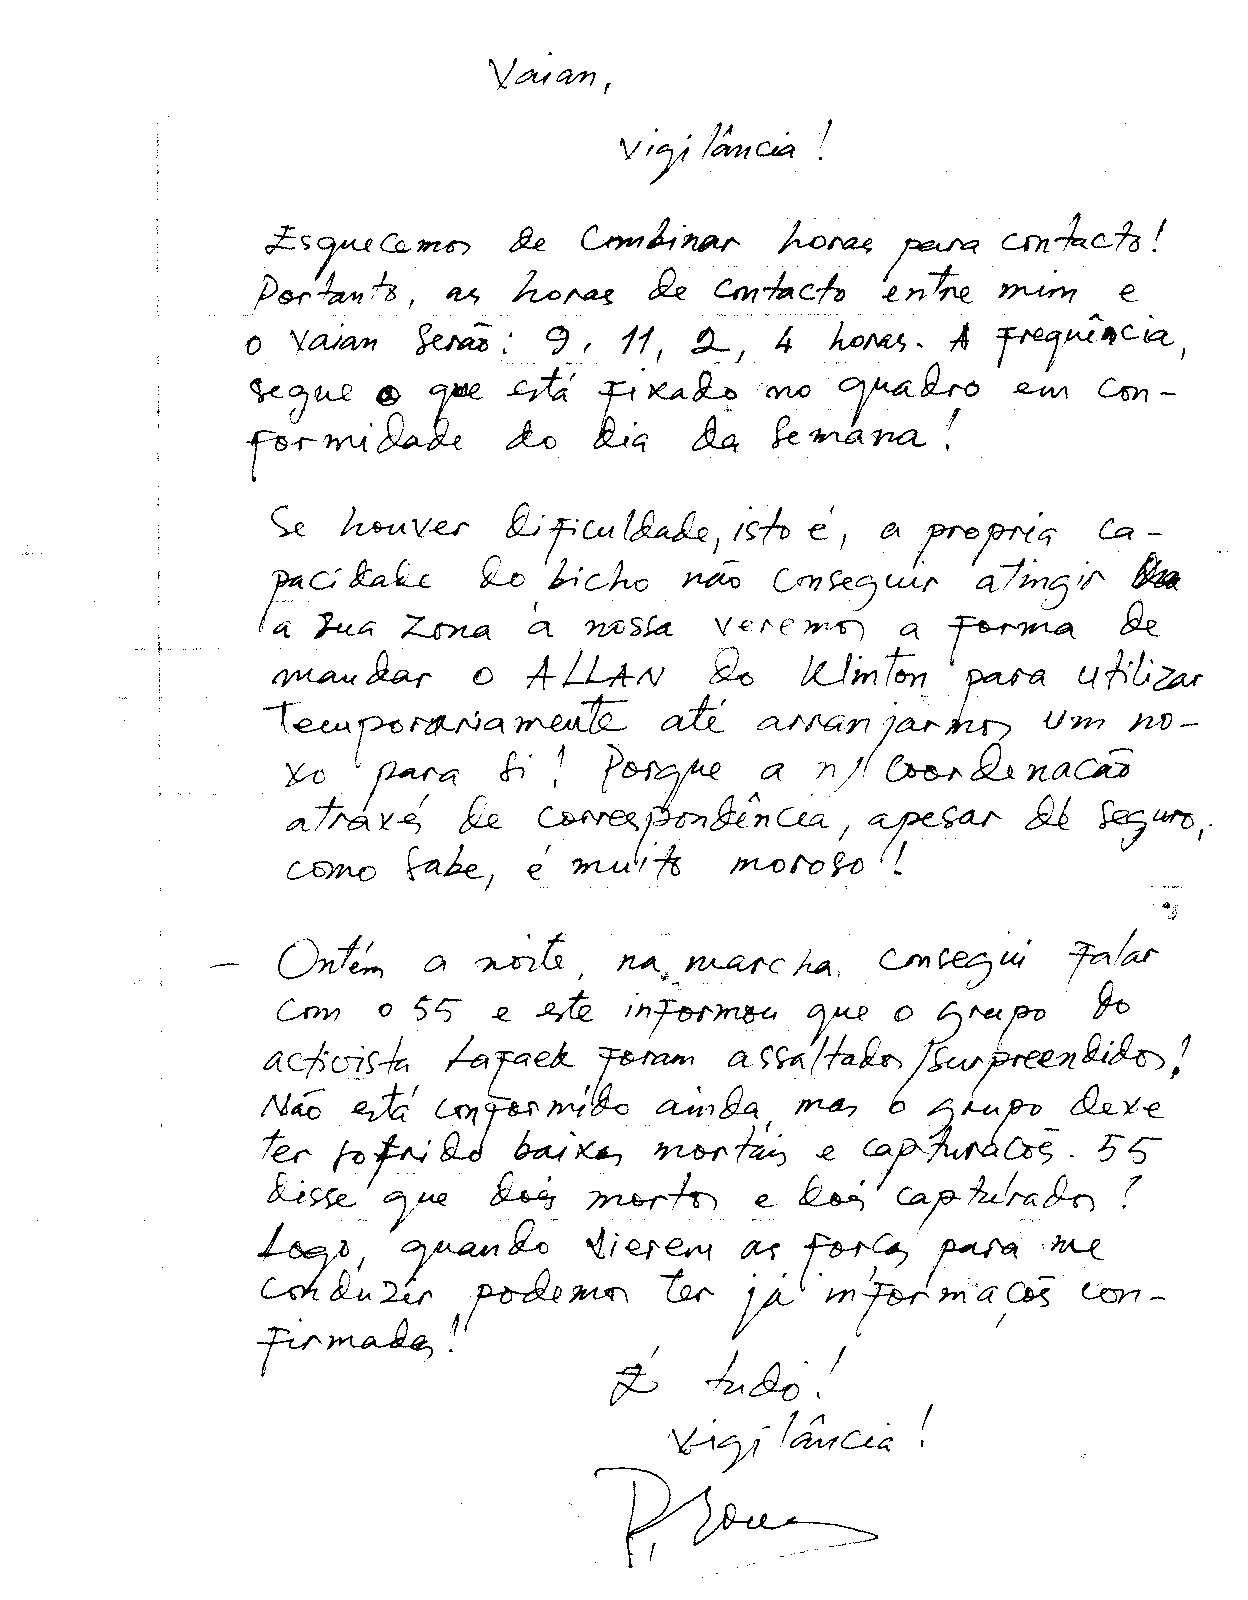 Vaian,
Vigilância!
Esquecemos de combinar horas para contacto!
Portanto, as horas de contacto entre mim e
o Vaian serão: 9, 11, 2, 4 horas. A frequência,
segue o que está fixado no quadro em con-
formidade do dia da semana!
Se houver dificuldade, isto é, a propria ca-
pacidade do bicho não conseguir atingir
a sua zona à nossa veremos a forma de
mandar o ALLAN do Klinton para utilizar
temporariamente até arranjarmos um no-
vo para si! Porque a n/ Coordenacão
através de correspondência, apesar de seguro,
como sabe, é muito moroso!
- Ontém a noite, na marcha, consegui falar
com o 55 e este informou que o grupo do
activista Lafaek foram assaltados/surpreendidos!
Não está conformido ainda, mas o grupo deve
ter sofrido baixas mortais e capturacõs. 55
disse que dois mortos e dois capturados!
Logo, quando vierem as forças para me
conduzir, podemos ter já informaçõs con-
firmadas!
É tudo!
Vigilância!